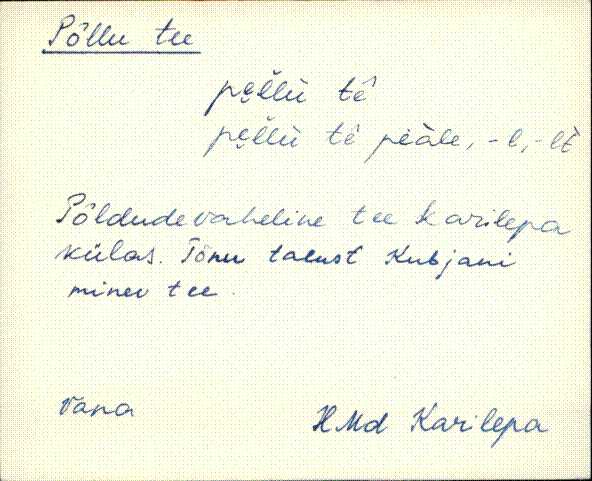 Põllu tee
pe̮l̆lù tê
pe̮l̆lù tê peàle, -l, -lt̀
Põldudevaheline tee Karilepa
külas. Tõnu talust Kubjani
minev tee.
vana
HMd Karilepa